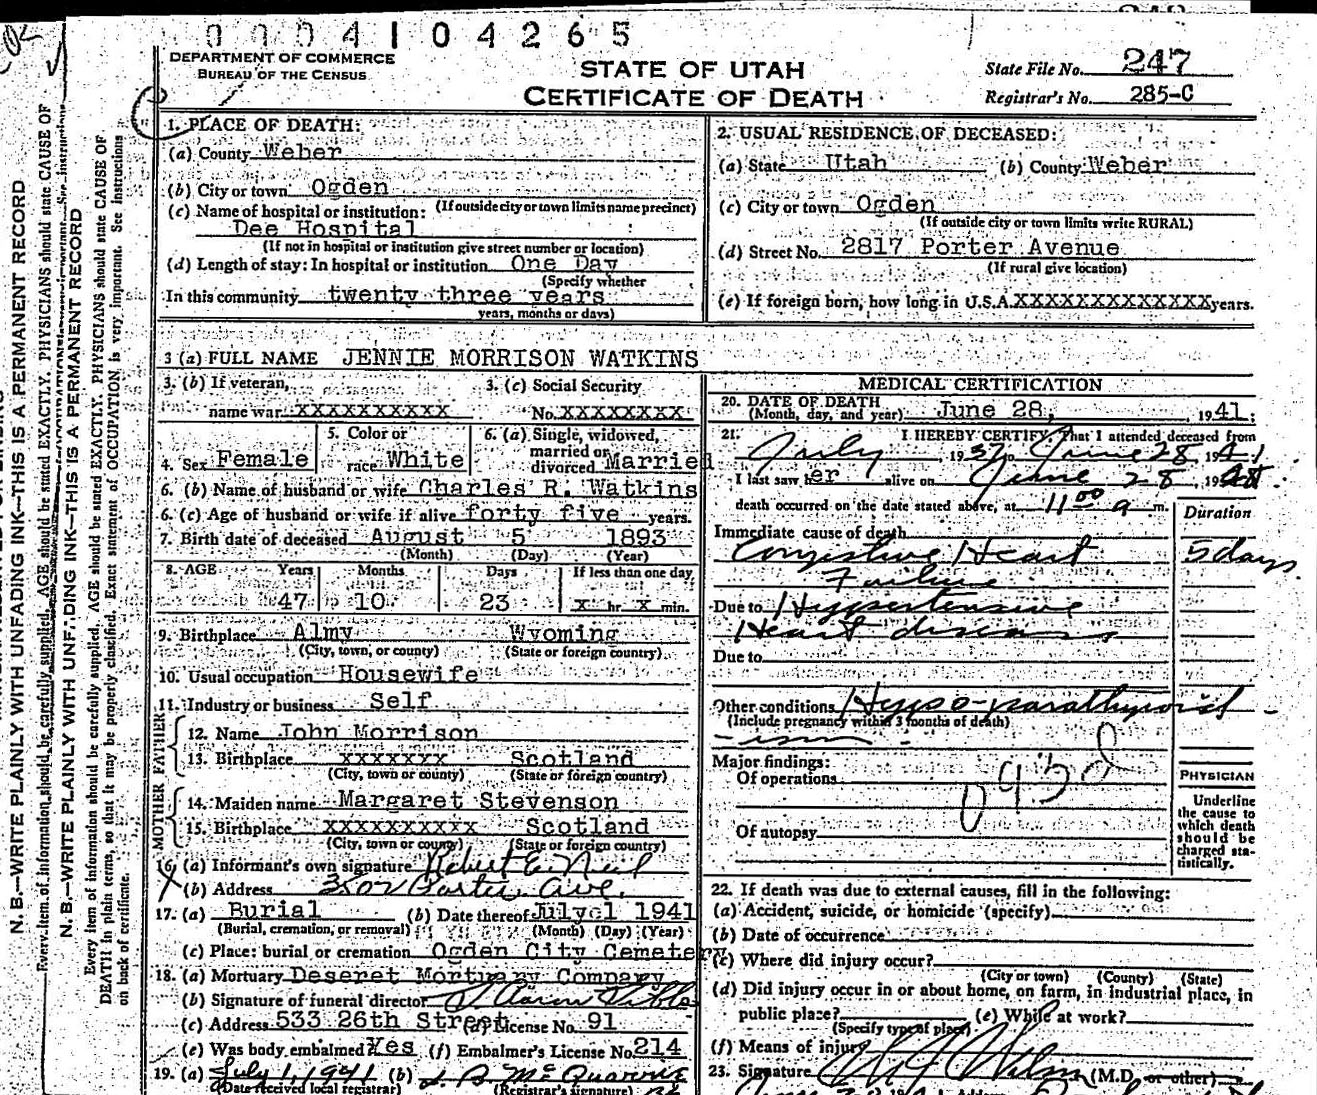 0004104265
DEPARTMENT OF COMMERCE
BUREAU OF THE CENSUS
STATE OF UTAH
CERTIFICATE OF DEATH
State File No. 247
Registrar's No. 285-C
1. PLACE OF DEATH:
(a) County Weber
(b) City or town Ogden
(If outside city or town limits name precinct)
(c) Name of hospital or institution:
Dee Hospital
(If not in hospital or institution give street number or location)
(d) Length of stay: In hospital or institution One Day
(Specify whether
In this community twenty three years
years, months or days)
2. USUAL RESIDENCE OF DECEASED:
(a) State Utah (b) County Weber
(c) City or town Ogden
(If outside city or town limits write RURAL)
(d) Street No. 2817 Porter Avenue
(If rural give location)
(e) If foreign born, how long in U.S.A. XXXXXXXXXXXXX years.
3 (a) FULL NAME JENNIE MORRISON WATKINS
3. (b) If veteran,
name war XXXXXXXXXX
3. (c) Social Security
No. XXXXXXXX
4. Sex Female
5. Color or
race White
6. (a) Single, widowed,
married or
divorced Married
6. (b) Name of husband or wife Charles R. Watkins
6. (c) Age of husband or wife if alive forty five years.
7. Birth date of deceased August 5 1893
(Month) (Day) (Year)
8. AGE Years Months Days If less than one day
47 10 23 X hr X min.
9. Birthplace Almy Wyoming
(City, town, or county) (State or foreign country)
10. Usual occupation Housewife
11. Industry or business Self
FATHER
12. Name John Morrison
13. Birthplace XXXXXXX Scotland
(City, town or county) (State or foreign country)
MOTHER
14. Maiden name Margaret Stevenson
15. Birthplace XXXXXXXXXX Scotland
(City, town or county) (State or foreign country)
16. (a) Informant's own signature Robert E. Neil
(b) Address Porter Ave.
17. (a) Burial (b) Date thereof July 1 1941
(Burial, cremation, or removal) (Month) (Day) (Year)
(c) Place: burial or cremation Ogden City Cemetery
18. (a) Mortuary Deseret Mortuary Company
(b) Signature of funeral director
(c) Address 533 26th Street (d) License No. 91
(e) Was body embalmed Yes (f) Embalmer's License No. 214
19. (a) July 1, 1941 (b)
(Date received local registrar) (Registrar's signature)
MEDICAL CERTIFICATION
20. DATE OF DEATH
(Month, day, and year) June 28, 1941;
21. I HEREBY CERTIFY, That I attended deceased from
July 1937 to June 28 1941
I last saw her alive on June 28, 19
death occurred on the date stated above, at 11 00 a m.
Duration
Immediate cause of death
Congestive Heart 5 days.
Failure
Due to Hypertensive
Heart disease
Due to
Other conditions Hypo-parathyroid-
(Include pregnancy within 3 months of death)
-ism.
Major findings:
Of operations
Of autopsy
PHYSICIAN
Underline
the cause to
which death
should be
charged sta-
tistically.
22. If death was due to external causes, fill in the following:
(a) Accident, suicide, or homicide (specify)
(b) Date of occurrence
(c) Where did injury occur?
(City or town) (County) (State)
(d) Did injury occur in or about home, on farm, in industrial place, in
public place? (e) While at work?
(Specify type of place)
(f) Means of injury
23. Signature (M.D. or other)
N. B.—WRITE PLAINLY WITH UNFADING INK—THIS IS A PERMANENT RECORD
Every item of information should be carefully supplied. AGE should be stated EXACTLY. PHYSICIANS should state CAUSE OF
N. B.—WRITE PLAINLY WITH UNFADING INK—THIS IS A PERMANENT RECORD
Every item of information should be carefully supplied. AGE should be stated EXACTLY. PHYSICIANS should state CAUSE OF
DEATH in plain terms, so that it may be properly classified. Exact statement of OCCUPATION is very important. See instructions
on back of certificate.